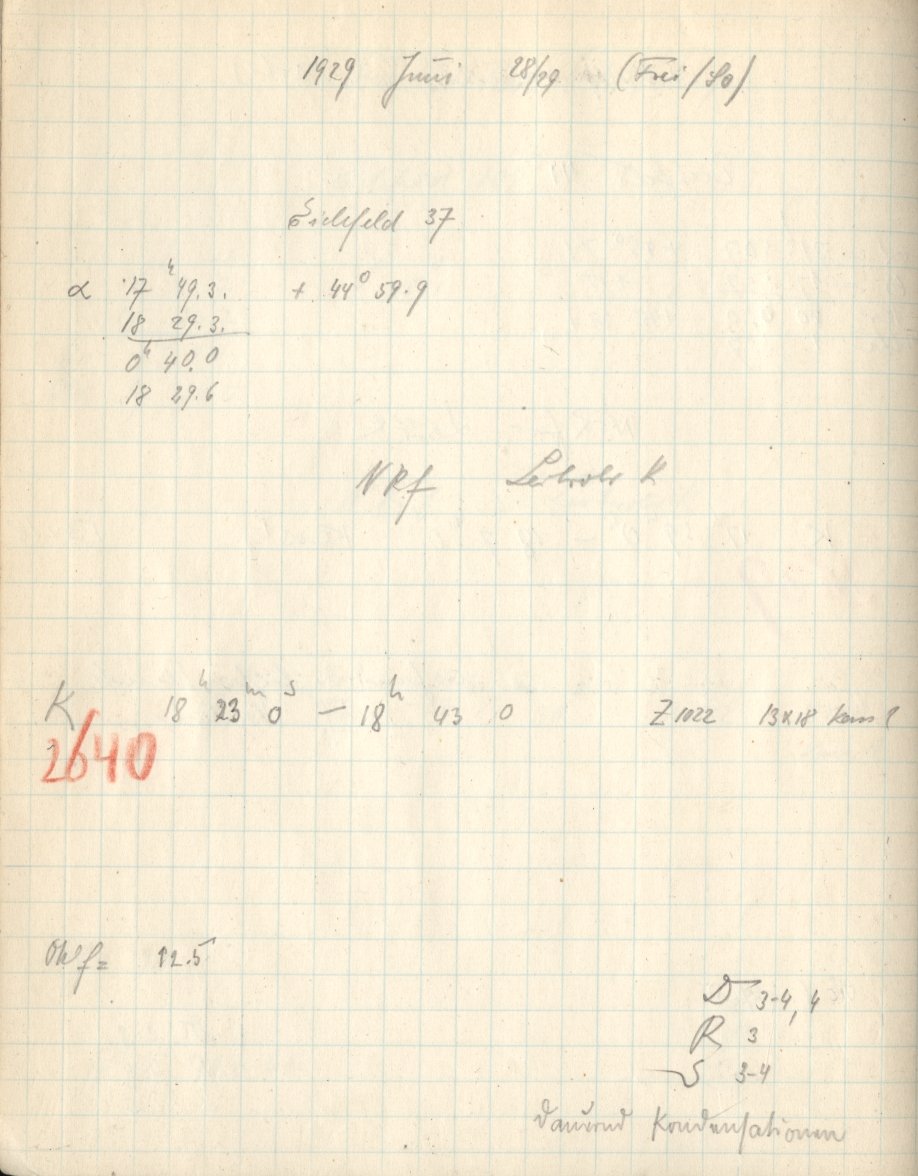 1929 Juni 28/29 (Frei/So)
Eichfeld 37
α 17ʰ 49.3. + 44° 59.9
18 29.3.
0ʰ 40.0
18 29.6
NRf K
K 18ʰ 23ᵐ 0ˢ — 18ʰ 43 0 Z 1022 13x18
2640
f = 12.5
D 3-4, 4
R 3
S 3-4
dauernd Kondensationen